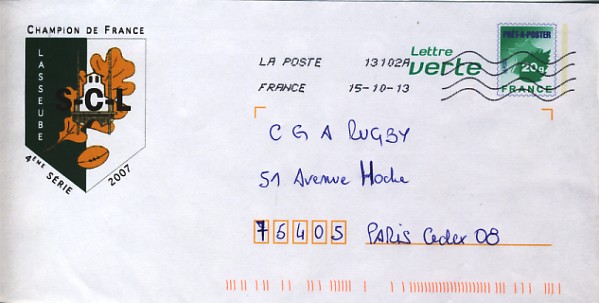 CHAMPION DE FRANCE
LASSEUBE
S-C-L
4ÈME SÉRIE 2007
LA POSTE 13102A
FRANCE 15-10-13
Lettre
verte
PRÊT-À-POSTER
20g
FRANCE
C G A RUGBY
51 Avenue Hoche
76405 PARIS Cedex 08